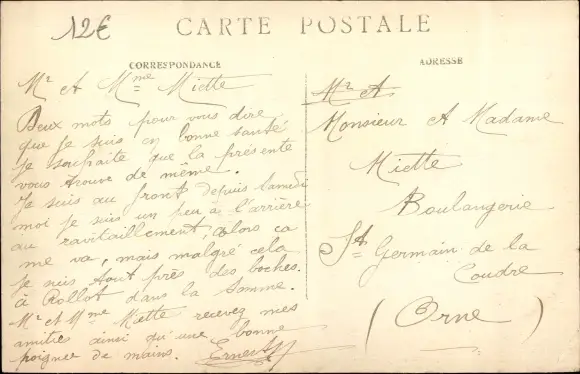 12€
CARTE POSTALE
CORRESPONDANCE
Mr et Mme Miette
Deux mots pour vous dire
que je suis en bonne santé
je souhaite que la présente
vous trouve de même.
Je suis au front depuis lundi
moi je suis un peu à l'arrière
au ravitaillement, alors ca
me va, mais malgré cela
je suis tout près des boches.
à Rollot dans la Somme.
Mr et Mme Miette recevez mes
amitiés ainsi qu'une bonne
poignée de mains. Ernest
ADRESSE
Mr et
Monsieur et Madame
Miette
Boulangerie
St Germain de la
Coudre
(Orne)